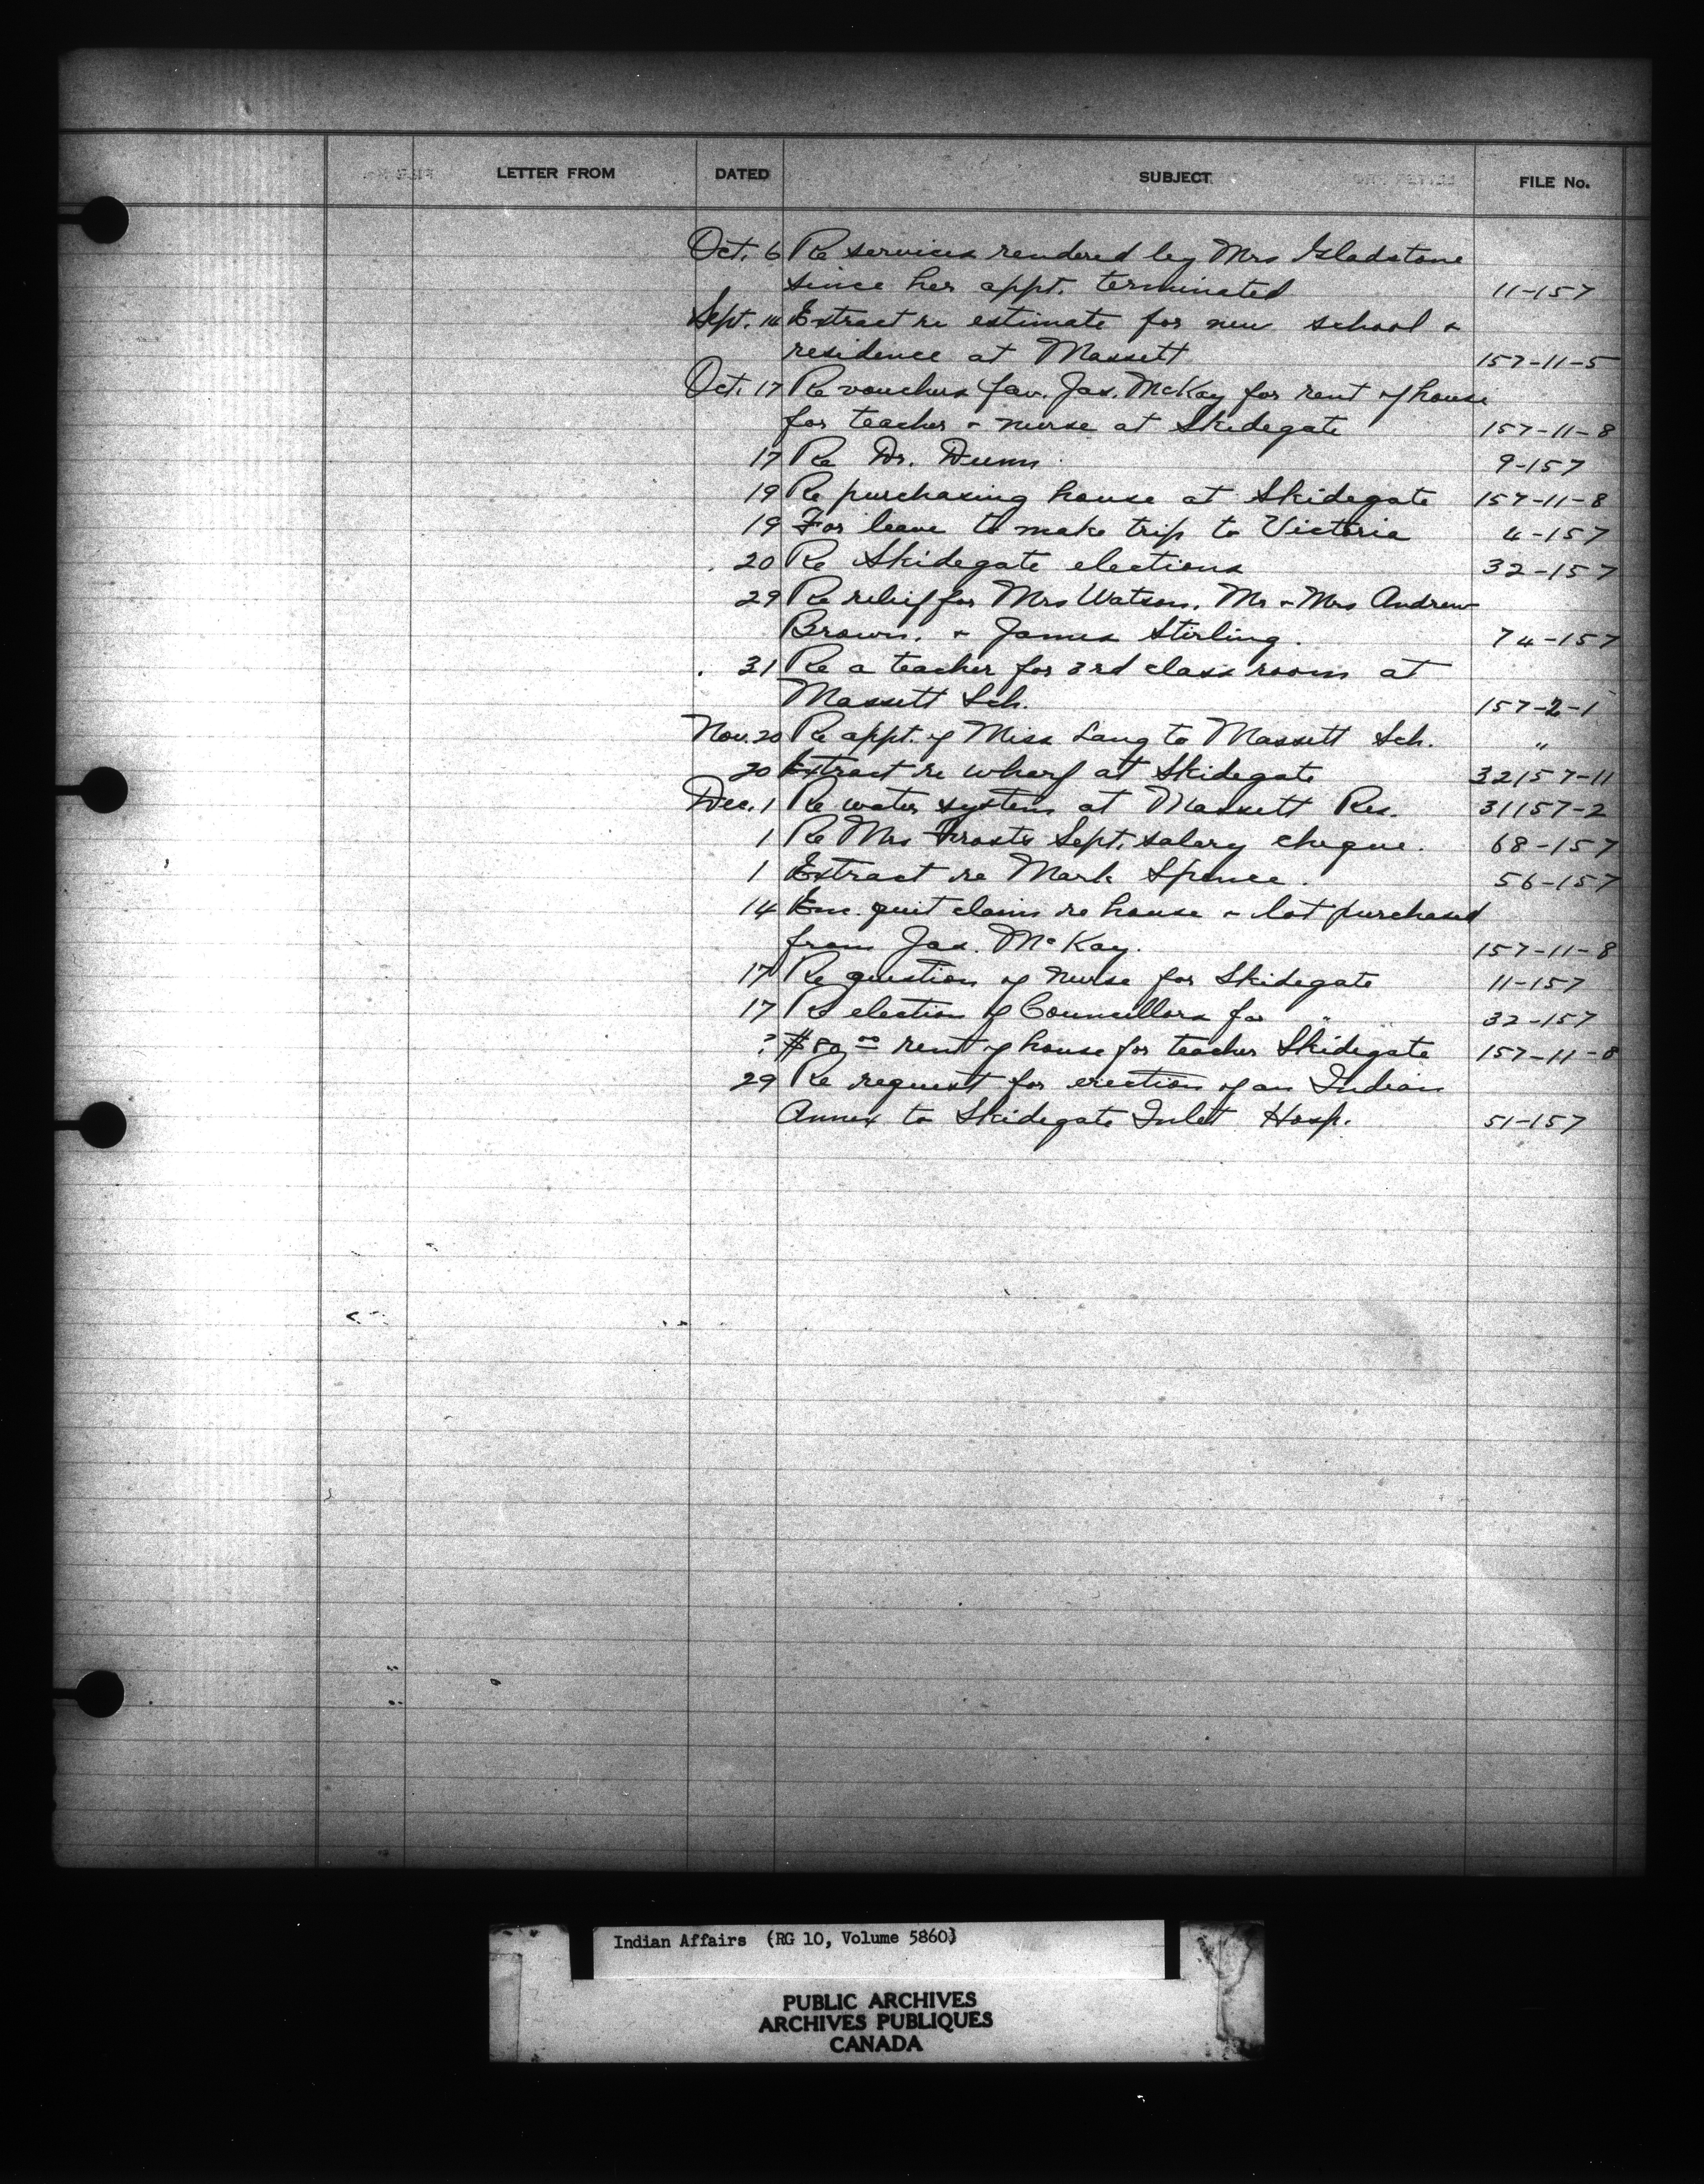 LETTER FROM DATED SUBJECT FILE No.
Oct. 6 Re services rendered by Mrs Gladstone
since her appt. terminated 11-157
Sept. 14 Extract re estimate for new school &
residence at Massett 157-11-5
Oct. 17 Re vouchers fav. Jas. McKay for rent of house
for teacher & nurse at Skidegate 157-11-8
17 Re Dr. Dunn 9-157
19 Re purchasing house at Skidegate 157-11-8
19 For leave to make trip to Victoria 4-157
20 Re Skidegate elections 32-157
29 Re relief for Mrs Watson, Mr & Mrs Andrew
Brown, & James Stirling. 74-157
31 Re a teacher for 3rd class room at
Massett Sch. 157-2-1
Nov. 20 Re appt. of Miss Lang to Massett Sch. "
20 Extract re wharf at Skidegate 32157-11
Dec. 1 Re water system at Massett Res. 31157-2
1 Re Mrs Frosts Sept. salary cheque. 68-157
1 Extract re Mark Spence. 56-157
14 Enc. quit claim re house & lot purchased
from Jas. McKay. 157-11-8
17 Re question of nurse for Skidegate 11-157
17 Re election of Councillors for " " 32-157
? rent of house for teacher Skidegate 157-11-8
29 Re request for erection of an Indian
Annex to Skidegate Inlet Hosp. 51-157
Indian Affairs (RG 10, Volume 5860)
PUBLIC ARCHIVES
ARCHIVES PUBLIQUES
CANADA